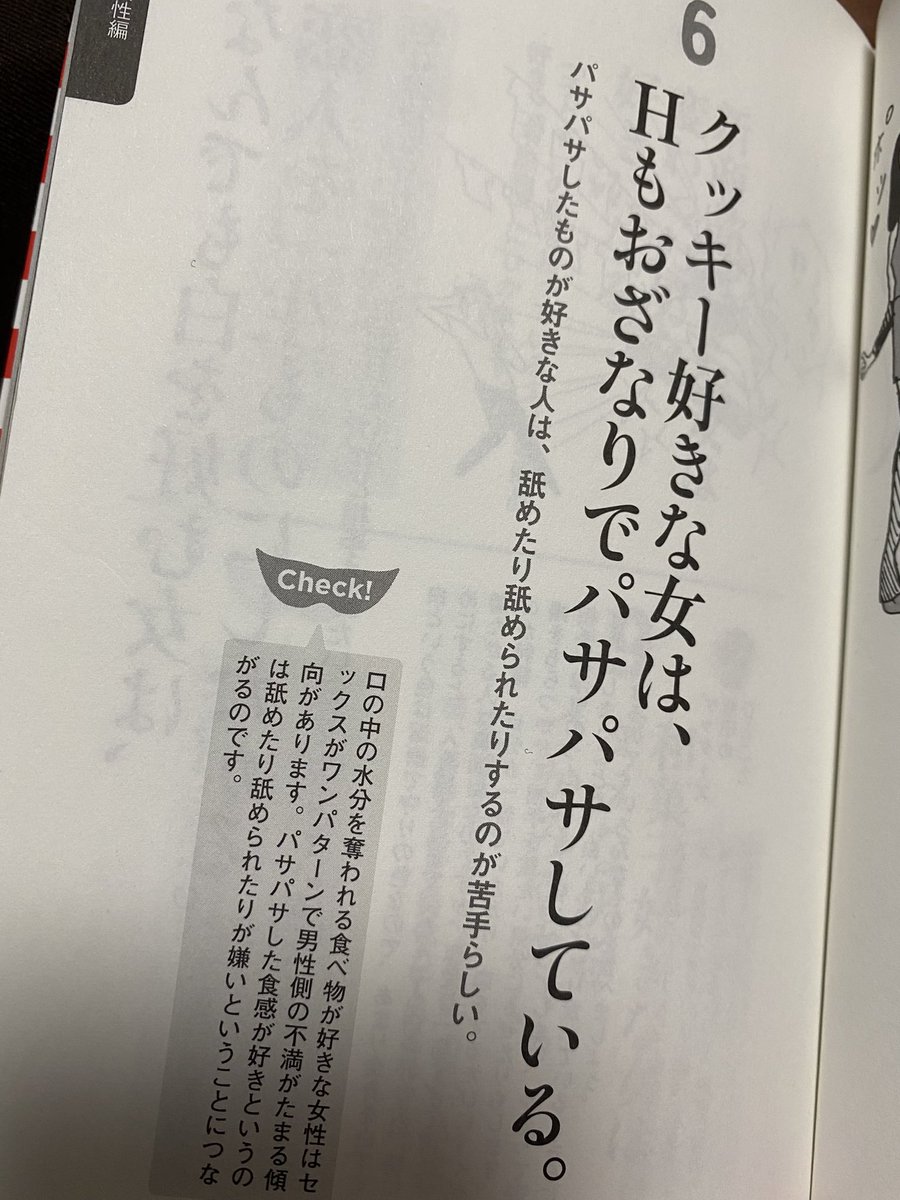 6
クッキー好きな女は、
Hもおざなりでパサパサしている。
パサパサしたものが好きな人は、舐めたり舐められたりするのが苦手らしい。
Check!
口の中の水分を奪われる食べ物が好きな女性はセ
ックスがワンパターンで男性側の不満がたまる傾
向があります。パサパサした食感が好きというの
は舐めたり舐められたりが嫌いということにつな
がるのです。
性編